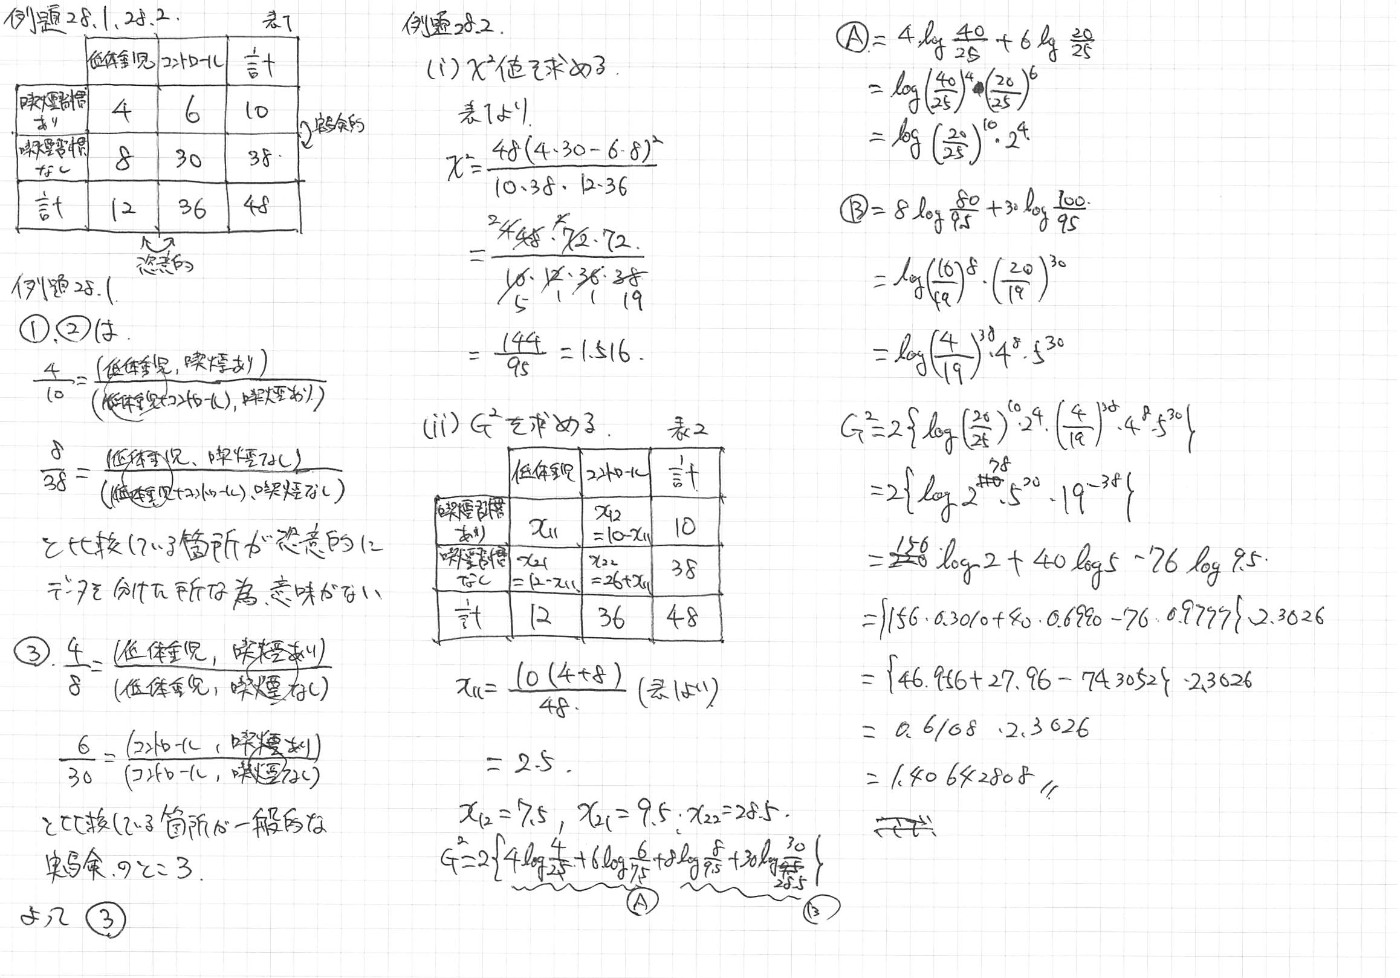 例題28.1, 28.2. 表1
低体重児 コントロール 計
喫煙習慣あり 4 6 10
喫煙習慣なし 8 30 38
計 12 36 48
実験的
恣意的
例題28.1
①,②は
4/10 = (低体重児, 喫煙あり)/((低体重児+コントロール), 喫煙あり)
8/38 = (低体重児、喫煙なし)/((低体重児+コントロール), 喫煙なし)
と比較している箇所が恣意的に
データを分けた所な為、意味がない
③. 4/8 = (低体重児, 喫煙あり)/(低体重児, 喫煙なし)
6/30 = (コントロール, 喫煙あり)/(コントロール, 喫煙なし)
と比較している箇所が一般的な
実験のところ.
よって ③
例題28.2.
(i) χ²値を求める.
表1より
χ² = 48(4·30−6·8)²/(10·38·12·36)
= 48·72·72/(10·12·36·38)
2 2
5 1 1 19
= 144/95 = 1.516.
(ii) G²を求める. 表2
低体重児 コントロール 計
喫煙習慣あり x₁₁ x₁₂=10−x₁₁ 10
喫煙習慣なし x₂₁=12−x₁₁ x₂₂=26+x₁₁ 38
計 12 36 48
x₁₁ = 10(4+8)/48. (表1より)
= 2.5.
x₁₂=7.5, x₂₁=9.5, x₂₂=28.5.
G²=2{4log 4/2.5 + 6log 6/7.5 + 8log 8/9.5 + 30log 30/28.5}
Ⓐ Ⓑ
Ⓐ = 4log 40/25 + 6log 20/25
= log(40/25)⁴·(20/25)⁶
= log(20/25)¹⁰·2⁴
Ⓑ = 8log 80/95 + 30log 100/95
= log(16/19)⁸·(20/19)³⁰
= log(4/19)³⁸·4⁸·5³⁰
G²=2{log(20/25)¹⁰·2⁴·(4/19)³⁸·4⁸·5³⁰}
=2{log 2⁷⁸·5²⁰·19⁻³⁸}
= 156 log2 + 40 log5 − 76 log 9.5.
={156·0.3010+40·0.6990−76·0.9777}·2.3026
= {46.956+27.96−74.3052}·2.3026
= 0.6108·2.3026
= 1.40642808〃